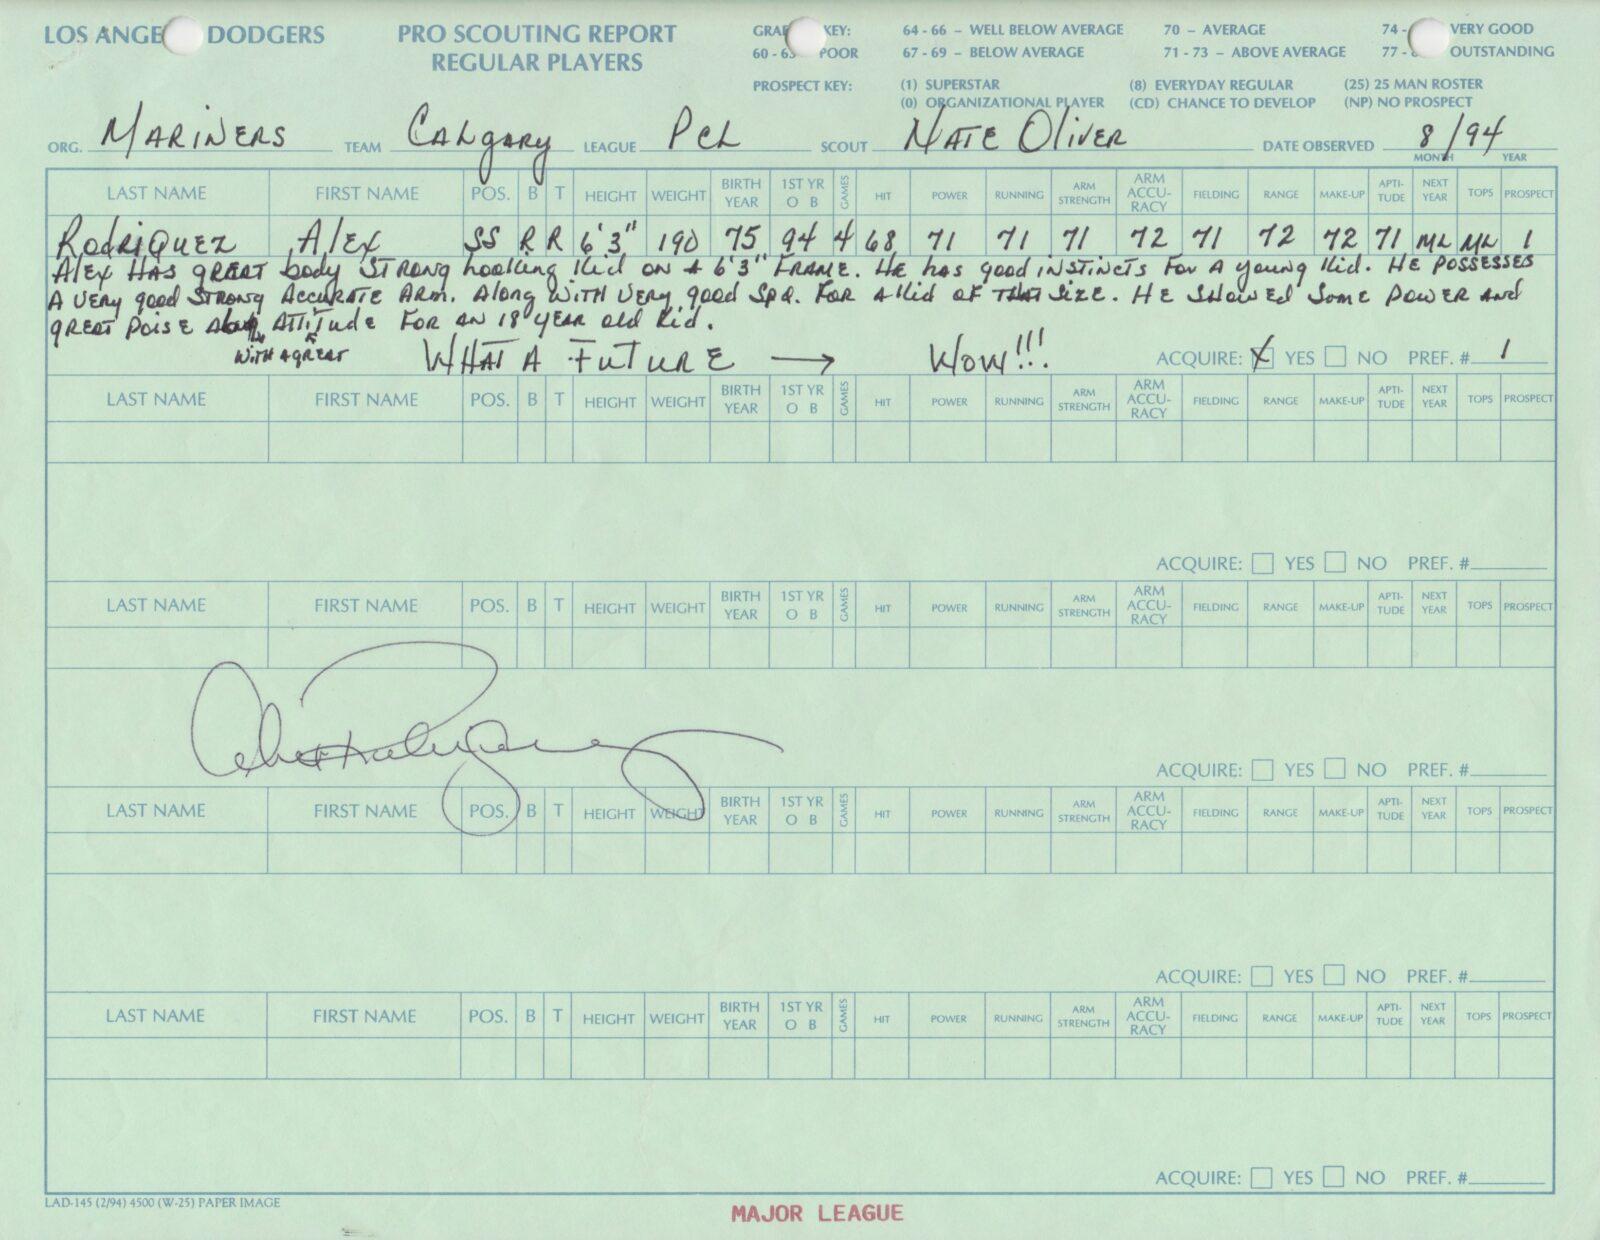 LOS ANGE DODGERS PRO SCOUTING REPORT GRA KEY: 64 - 66 – WELL BELOW AVERAGE 70 – AVERAGE 74 - VERY GOOD
REGULAR PLAYERS 60 - 63 POOR 67 - 69 – BELOW AVERAGE 71 - 73 – ABOVE AVERAGE 77 - OUTSTANDING
PROSPECT KEY: (1) SUPERSTAR (8) EVERYDAY REGULAR (25) 25 MAN ROSTER
(0) ORGANIZATIONAL PLAYER (CD) CHANCE TO DEVELOP (NP) NO PROSPECT
ORG. MARINERS TEAM CALgary LEAGUE PCL SCOUT NATE OliVER DATE OBSERVED 8/94
MONTH YEAR
LAST NAME FIRST NAME POS. B T HEIGHT WEIGHT BIRTH YEAR 1ST YR O B GAMES HIT POWER RUNNING ARM STRENGTH ARM ACCU-RACY FIELDING RANGE MAKE-UP APTI-TUDE NEXT YEAR TOPS PROSPECT
RodRiQUEZ AlEX SS R R 6'3" 190 75 94 4 68 71 71 71 72 71 72 72 71 ML ML 1
AlEX HAS gREAT body STRONg looking kid on A 6'3" FRAME. HE has good iNSTiNCTS FoR A young kid. HE POSSESSES
A VERy good STRONg AccuRATE ARM. Along WiTH VERy good SPd. FoR A kid oF THAT SizE. HE SHowEd SomE PowER ANd
gREAT PoisE Along ATTiTudE FoR AN 18 yEAR old kid.
WiTH A gREAT WHAT A FuTuRE → WoW!!! ACQUIRE: X YES NO PREF. # 1
LAST NAME FIRST NAME POS. B T HEIGHT WEIGHT BIRTH YEAR 1ST YR O B GAMES HIT POWER RUNNING ARM STRENGTH ARM ACCU-RACY FIELDING RANGE MAKE-UP APTI-TUDE NEXT YEAR TOPS PROSPECT
ACQUIRE: YES NO PREF. #
LAST NAME FIRST NAME POS. B T HEIGHT WEIGHT BIRTH YEAR 1ST YR O B GAMES HIT POWER RUNNING ARM STRENGTH ARM ACCU-RACY FIELDING RANGE MAKE-UP APTI-TUDE NEXT YEAR TOPS PROSPECT
ACQUIRE: YES NO PREF. #
LAST NAME FIRST NAME POS. B T HEIGHT WEIGHT BIRTH YEAR 1ST YR O B GAMES HIT POWER RUNNING ARM STRENGTH ARM ACCU-RACY FIELDING RANGE MAKE-UP APTI-TUDE NEXT YEAR TOPS PROSPECT
ACQUIRE: YES NO PREF. #
LAST NAME FIRST NAME POS. B T HEIGHT WEIGHT BIRTH YEAR 1ST YR O B GAMES HIT POWER RUNNING ARM STRENGTH ARM ACCU-RACY FIELDING RANGE MAKE-UP APTI-TUDE NEXT YEAR TOPS PROSPECT
ACQUIRE: YES NO PREF. #
LAD-145 (2/94) 4500 (W-25) PAPER IMAGE
MAJOR LEAGUE